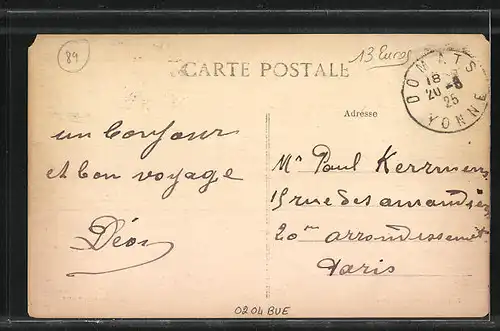 89
13 Euros
CARTE POSTALE
DOMATS
18
20 -8
25
YONNE
Adresse
un bonjour
et bon voyage
Mr Paul Kerrmen
15 rue des amandiers
20me arrondissement
Paris
0204BUE